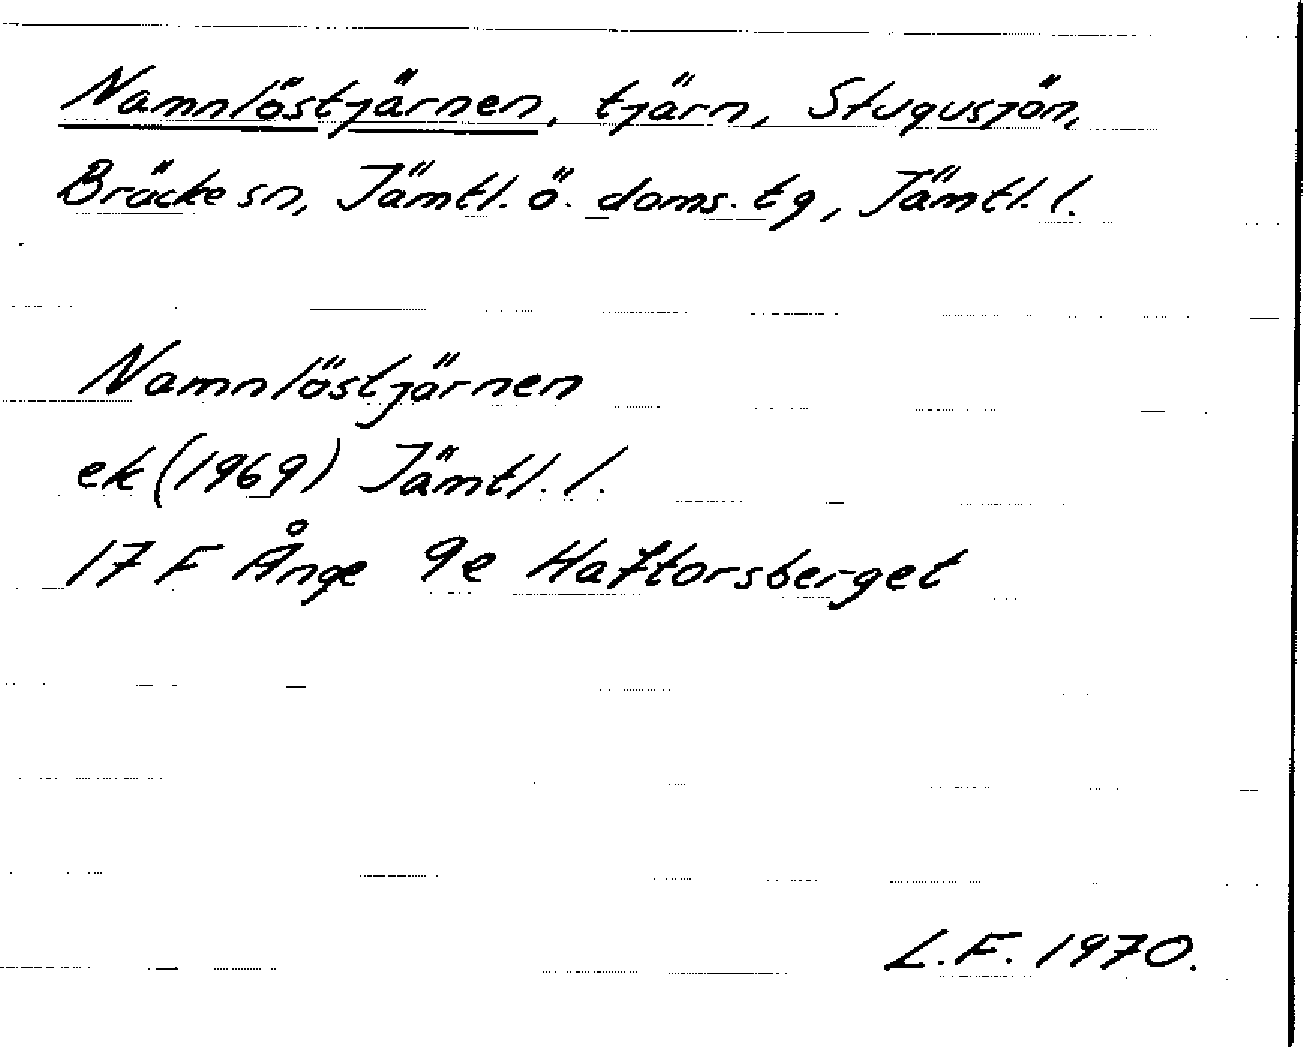 Namnlöstjärnen, tjärn, Stugusjön,
Bräcke sn, Jämtl. ö. doms. tg, Jämtl. l.
Namnlöstjärnen
ek (1969) Jämtl. l.
17 F Ånge 9e Haftorsberget
L.F. 1970.